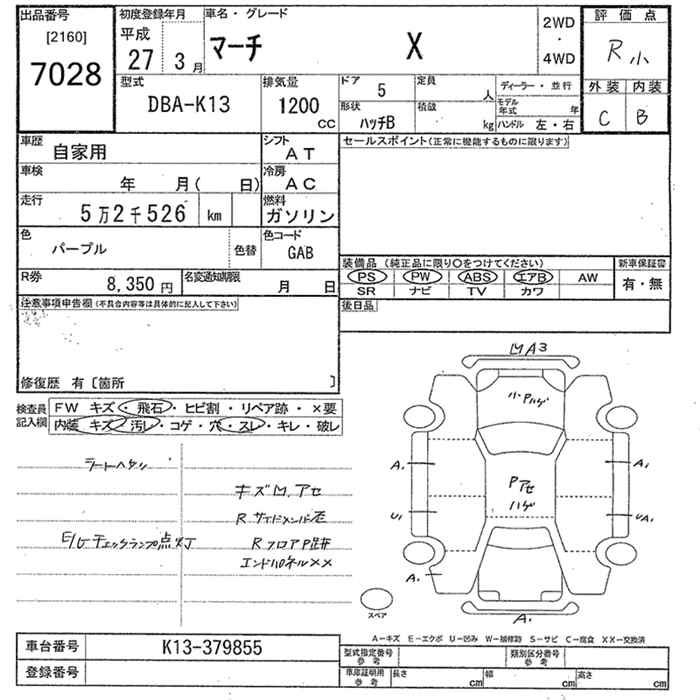 出品番号
[2160]
7028
初度登録年月
平成
27 3 月
車名・グレード
マーチ X
2WD
・
4WD
評価点
R 小
外装 内装
C B
型式
DBA-K13
排気量
1200
CC
ドア 5
定員 人
形状 ハッチB
積載 kg
ディーラー・並行
モデル年式 年
ハンドル 左・右
車歴
自家用
シフト
AT
車検
年 月( 日)
冷房
AC
走行
5万2千526 km
燃料
ガソリン
色
パープル
色替
色コード
GAB
R券
8,350 円
名変通知期限
月 日
セールスポイント(正常に機能するものに限ります)
装備品(純正品に限り○をつけてください)
PS PW ABS エアB AW
SR ナビ TV カワ
新車保証書
有・無
後日品
注意事項申告欄(不具合内容等は具体的に記入して下さい)
修復歴 有〔箇所 〕
検査員
記入欄
FW キズ・飛石・ヒビ割・リペア跡・×要
内装 キズ・汚レ・コゲ・穴・スレ・キレ・破レ
シートヘタリ
キズ凹,アセ
Rサイドメンバー左
E/Gチェックランプ点灯
RフロアP
エンドパネル××
凹A3
小Pハゲ
A1 A1
Pアセ
ハゲ
U1 UA1
A1
A1
スペア
A−キズ E−エクボ U−凹み W−補修跡 S−サビ C−腐食 XX−交換済
車台番号
K13-379855
登録番号
型式指定番号
参考
類別区分番号
参考
車庫証明用
参考
長さ cm
幅 cm
高さ cm